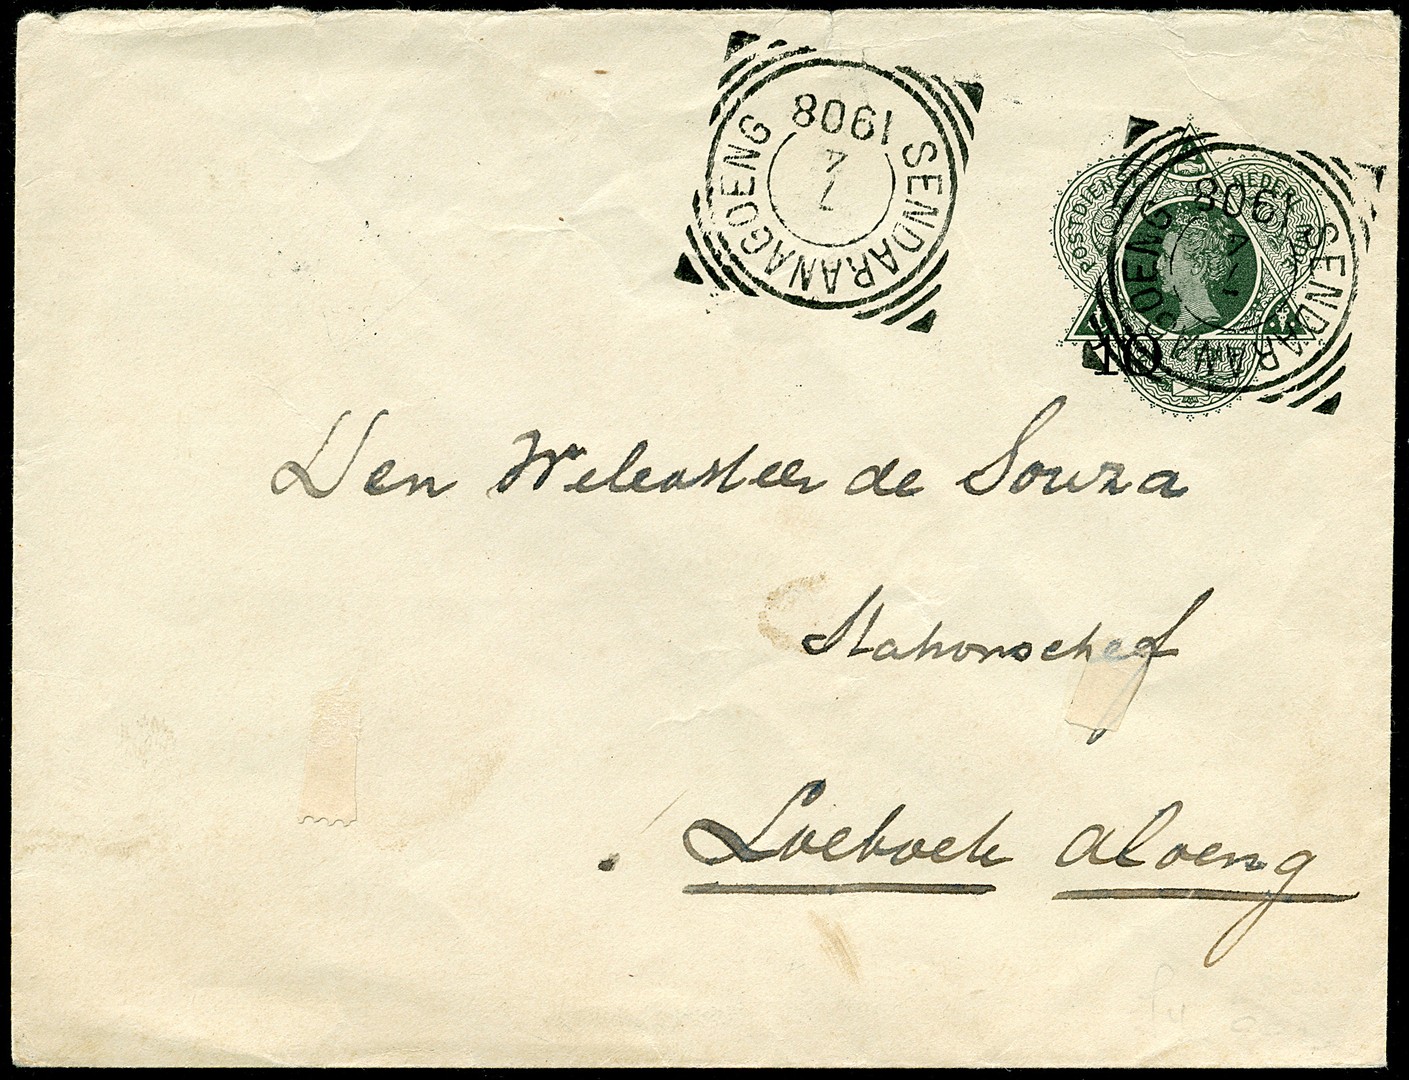 SENDARANAGOENG
1908
7
4
POSTDIENST NEDERL. INDIË
SENDARANAGOENG
1908
10
Den Weledsteer de Souza
Stationschef
Loeboek Aloeng